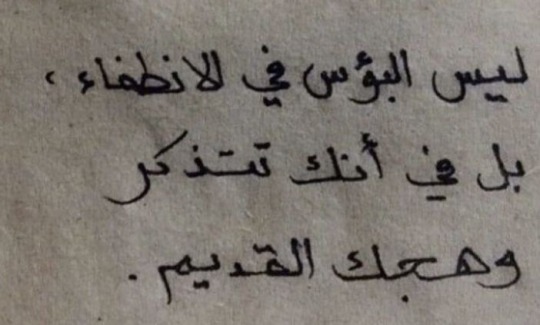 ليس البؤس في الانطفاء،
بل في أنك تتذكر
وهجك القديم.